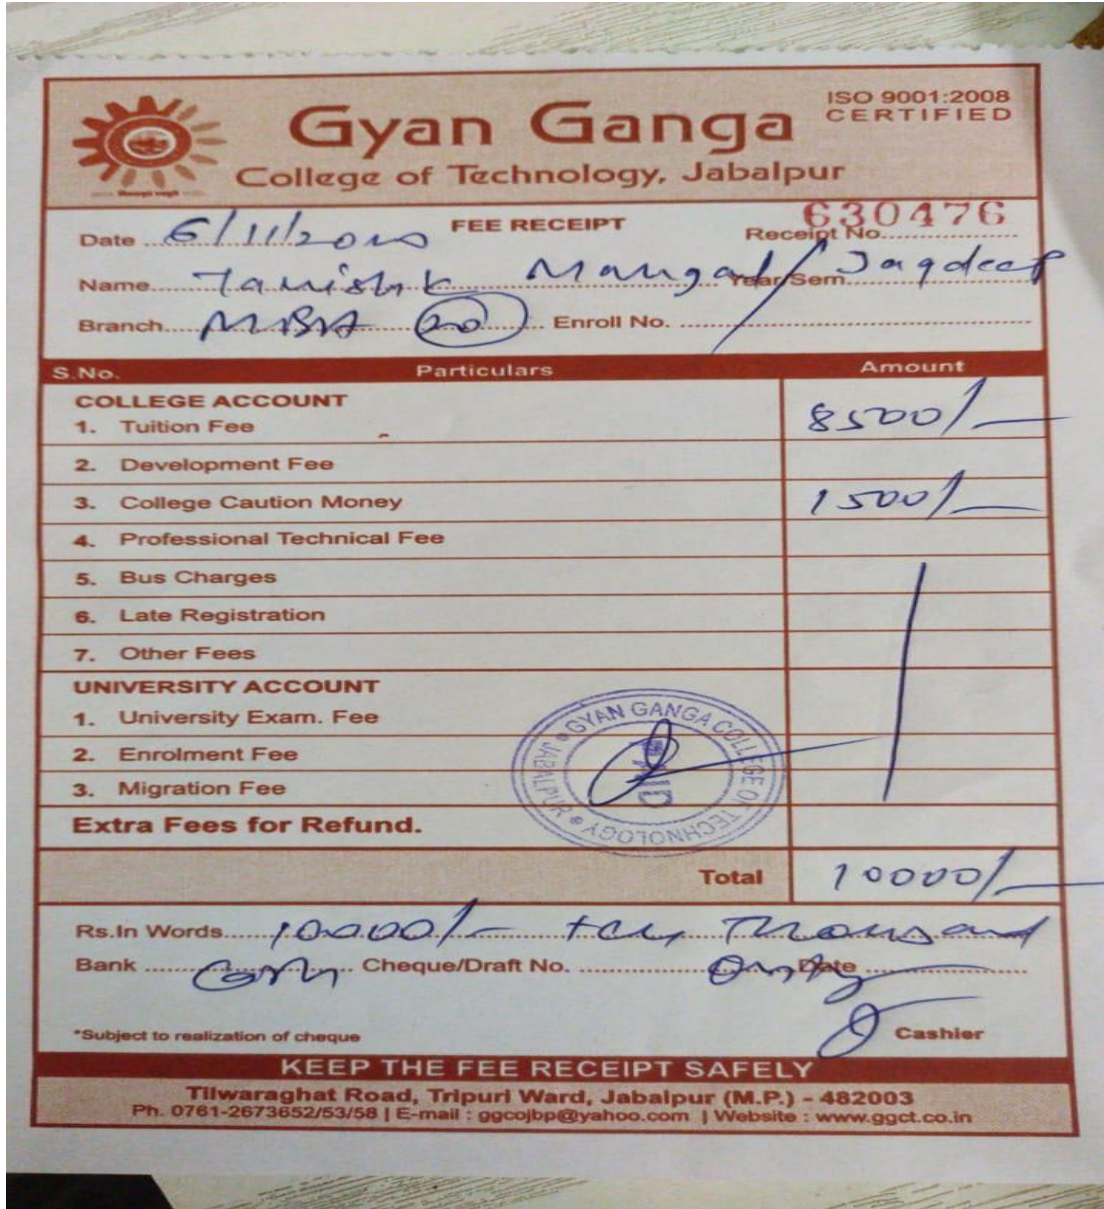 ISO 9001:2008
CERTIFIED
Gyan Ganga
College of Technology, Jabalpur
FEE RECEIPT
630476
Date 6/11/2020 Receipt No.
Name Tanishk Mangal / Jagdeep Year/Sem.
Branch MBA (20) Enroll No.
S.No. Particulars Amount
COLLEGE ACCOUNT
1. Tuition Fee 8500/-
2. Development Fee
3. College Caution Money 1500/-
4. Professional Technical Fee
5. Bus Charges
6. Late Registration
7. Other Fees
UNIVERSITY ACCOUNT
1. University Exam. Fee
2. Enrolment Fee
3. Migration Fee
GYAN GANGA COLLEGE OF TECHNOLOGY
JABALPUR
PAID
Extra Fees for Refund.
Total 10000/-
Rs.In Words 10000/- ten Thousand
Bank Cheque/Draft No. Only Date
*Subject to realization of cheque Cashier
KEEP THE FEE RECEIPT SAFELY
Tilwaraghat Road, Tripuri Ward, Jabalpur (M.P.) - 482003
Ph. 0761-2673652/53/58 | E-mail : ggcojbp@yahoo.com | Website : www.ggct.co.in